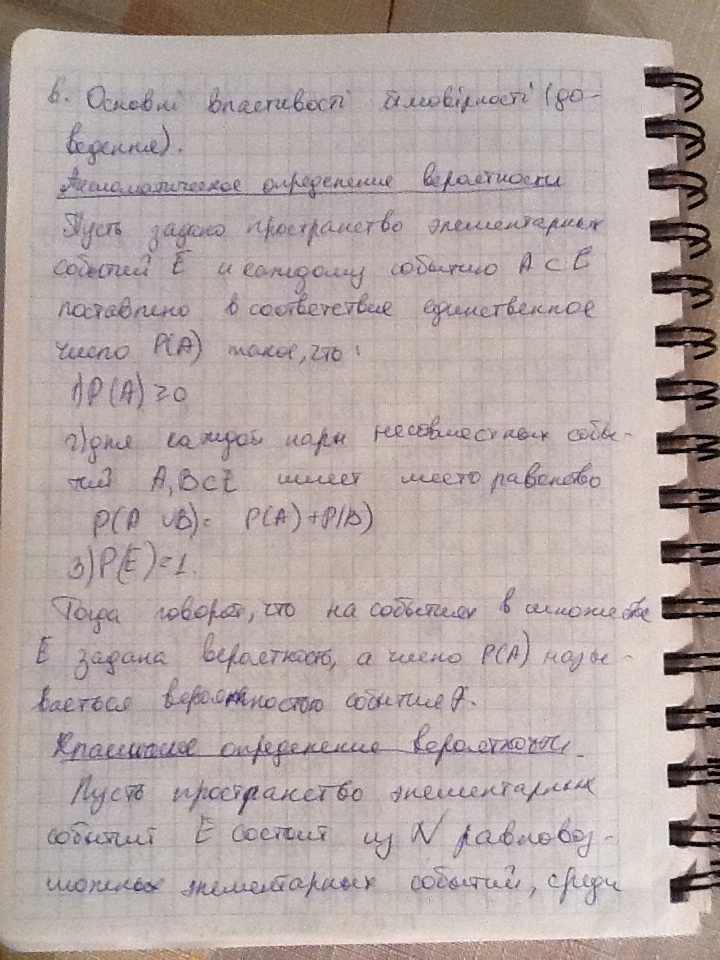 6. Основні властивості ймовірності (до-
ведення).
Аксиоматическое определение вероятности
Пусть задано пространство элементарных
событий E и каждому событию A ⊂ E
поставлено в соответствие единственное
число P(A) такое, что:
1) P(A) ≥ 0
2) для каждой пары несовместных собы-
тий A, B ⊂ E имеет место равенство
P(A ∪ B) = P(A) + P(B)
3) P(E) = 1.
Тогда говорят, что на событиях в множестве
E задана вероятность, а число P(A) назыв-
вается вероятностью события A.
Классическое определение вероятности.
Пусть пространство элементарных
событий E состоит из N равновоз-
можных элементарных событий, среди